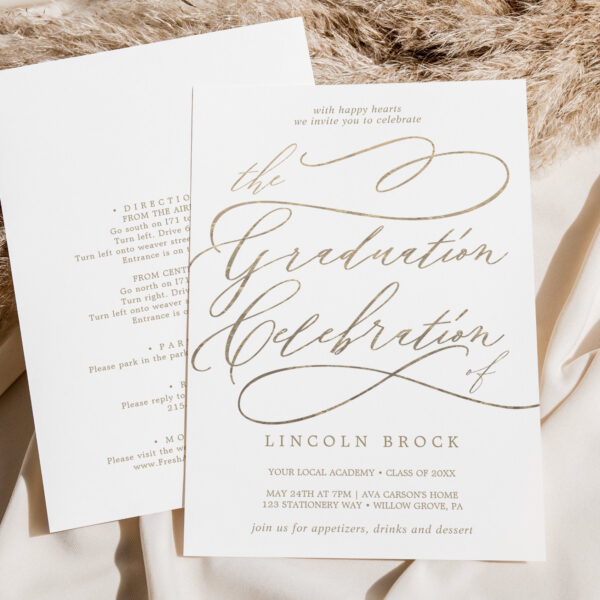 with happy hearts
we invite you to celebrate
the
Graduation
Celebration
of
LINCOLN BROCK
YOUR LOCAL ACADEMY • CLASS OF 20XX
MAY 24TH AT 7PM | AVA CARSON'S HOME
123 STATIONERY WAY • WILLOW GROVE, PA
join us for appetizers, drinks and dessert
•
FROM THE
Go south on I71 to
Turn left. Drive
Turn left onto weaver
Entrance is on
FROM
Go north on I71
Turn right.
Turn left onto weaver
Entrance is on
•
Please park in the park
•
Please reply to
•
Please visit the